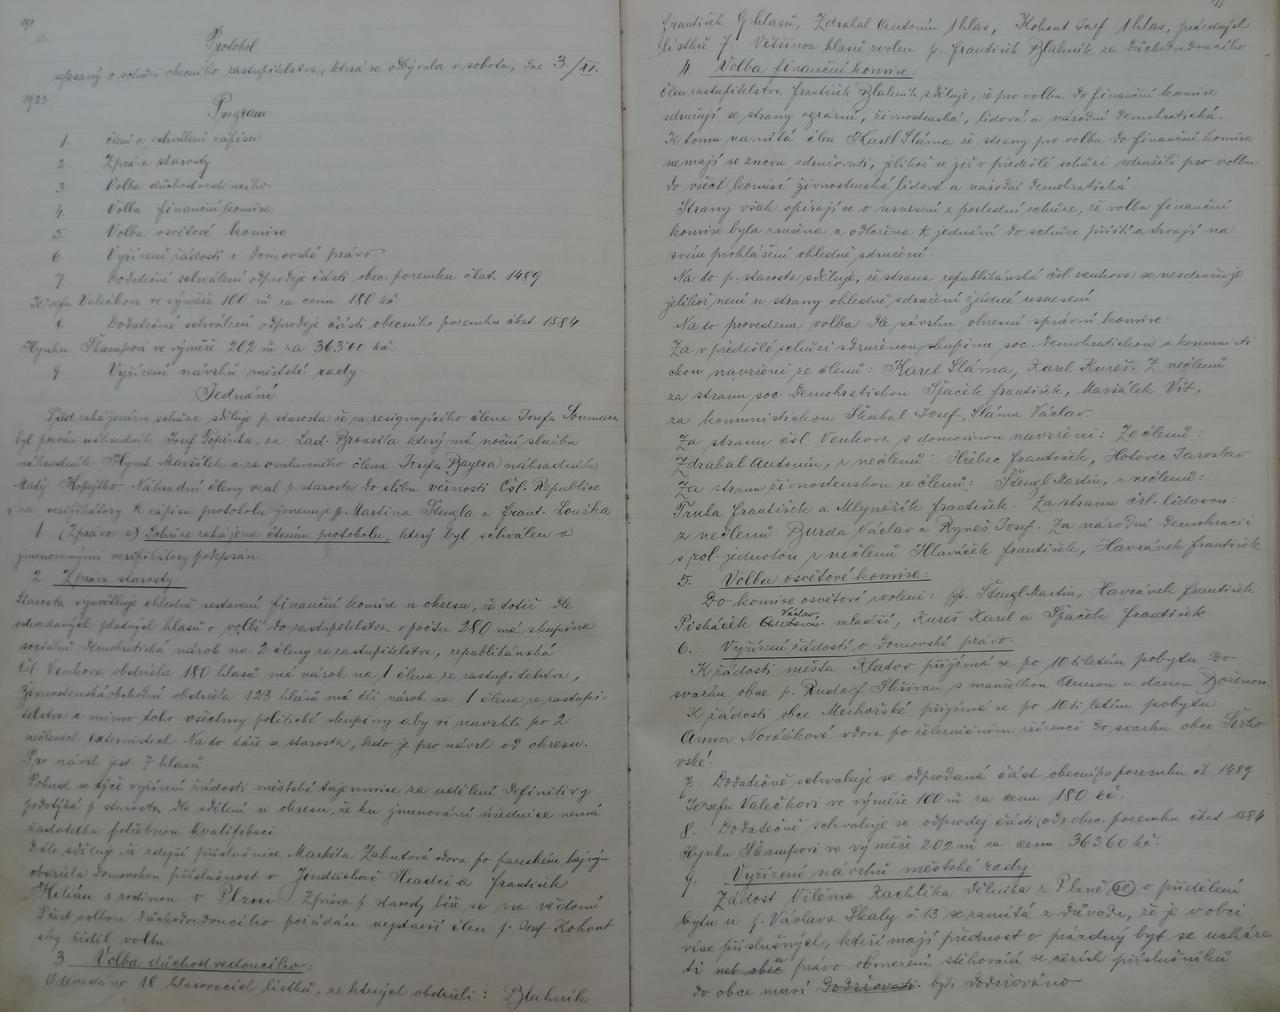 Protokol
sepsaný o schůzi obecního zastupitelstva, která se odbývala v sobotu, dne 3/XI.
1923.
Program
1. Čtení a schválení zápisu
2. Zpráva starosty
3. Volba důchodvedoucího
4. Volba finanční komise
5. Volba osvětové komise
6. Vyřízení žádostí o domovské právo
7. Dodatečné schválení odprodeje části obec. pozemku čkat. 1489
Josefu Valečkovi ve výměře 100 m² za cenu 180 kč.
8. Dodatečné schválení odprodeje části obecního pozemku čkat. 1584
Hynku Škampovi ve výměře 202 m² za 36360 kč.
9. Vyřízení návrhů městské rady.
Jednání
Před zahájením schůze sděluje p. starosta že za resignujícího člena Josefa Soumara
byl povolán náhradník Josef Topinka, za Lad. Brousila který má noční službu
náhradník Hynek Maršálek a za omluveného člena Josefa Bayera náhradník
Matěj Kopejtko. Náhradní členy vzal p. starosta do slibu věrnosti Čsl. Republice
za verifikátory k zápisu protokolu jmenuje p. Martina Štengla a Frant. Louška
1 (Zpráva s) Schůze zahájena čtením protokolu, který byl schválen a
jmenovanými verifikátory podepsán.
2. Zpráva starosty:
Starosta vysvětluje ohledně sestavení finanční komise u okresu, že totiž dle
odevzdaných platných hlasů o volbě do zastupitelstva v počtu 280 má skupina
sociálně demokratická nárok na 2 členy ze zastupitelstva, republikánská
Čsl. Venkova obdržela 180 hlasů má nárok na 1 člena ze zastupitelstva,
živnostenskáobchodní obdržela 123 hlasů má též nárok na 1 člena ze zastupi-
telstva a mimo toho všechny politické skupiny aby si navrhli po 2
nečlenech externistech. Na to táže se starosta, kdo je pro návrh od okresu.
Pro návrh jest 7 hlasů.
Pokud se týče vyřízení žádosti městské tajemnice za udělení definitivy
podotýká p. starosta dle sdělení u okresu, že ku jmenování úřednice nemá
žadatelka potřebnou kvalifikaci.
Dále sděluje, že zdejší příslušnice Markéta Zahutová vdova po panském hajným
obdržela domovskou příslušnost v Jindřichově Hradci a František
Kilián s rodinou v Plzni. Zpráva p. starosty běře se na vědomí
Před volbou důchodvedoucího požádán nejstarší člen p. Josef Kohout
aby řídil volbu.
3. Volba důchodvedoucího:
Odevzdáno 18 hlasovacích lístků, ze kterých obdrželi: Blahník
František 9 hlasů, Zdrahal Antonín 1 hlas, Kohout Josef 1 hlas, prázdných
lístků 7. Většinou hlasů zvolen p. František Blahník za důchodvedoucího
4. Volba finanční komise:
Člen zastupitelstva František Blahník sděluje, že pro volbu do finanční komise
sdružují se strany agrární, živnostenská, lidová a národní demokratická.
K tomu namítá člen Karel Sláma že strany pro volbu do finanční komise
nemají se znovu sdružovati, jelikož se již v předešlé schůzi sdružili pro volbu
do všech komisí živnostenská, lidová a národní demokratická.
Strany však opírají se o usnesení z poslední schůze, že volba finanční
komise byla zrušena a odložena k jednání do schůze příští a trvají na
svém prohlášení ohledně sdružení.
Na to p. starosta sděluje, že strana republikánská čsl. venkova se nesdružuje
jelikož není u strany ohledně sdružení žádné usnesení.
Na to provedena volba dle návrhu okresní správní komise:
Za v předešlé schůzi sdruženou skupinu soc. demokratickou a komunisti
ckou navrženi ze členů: Karel Sláma, Karel Kureš. Z nečlenů
za stranu soc. demokratickou Špaček František, Maršálek Vít,
za komunistickou Škubal Josef, Sláma Václav.
Za stranu čsl. Venkova s domovinou navrženi: Ze členů:
Zdrahal Antonín, z nečlenů: Hřebec František, Hotovec Jaroslav
Za stranu živnostenskou ze členů: Štengl Martin, z nečlenů:
Truba František a Mlynařík František. Za stranu čsl. lidovou:
z nečlenů Burda Václav a Ryneš Josef. Za národní demokracii
s pol. jednotou z nečlenů Hlaváček František, Havránek František
5. Volba osvětové komise:
Do komise osvětové zvoleni: pp. Štengl Martin, Havránek František
Pisháček Václav mladší, Kureš Karel a Špaček František.
6. Vyřízení žádostí o domovské právo.
K žádosti města Kladov přijímá se po 10 tiletém pobytu do
svazku obce p. Rudolf Skřivan s manželkou Annou a dcerou Boženou
K žádosti obce Mechoršké přijímá se po 10 ti letém pobytu
Anna Nováčková vdova po železničním zřízenci do svazku obce Sírko
vské.
7. Dodatečně schvaluje se odprodaná část obecního pozemku čk 1489
Josefu Valečkovi ve výměře 100 m² za cenu 180 kč.
8. Dodatečně schvaluje se odprodej části (od) obec. pozemku čkat 1584
Hynku Škampovi ve výměře 202 m² za cenu 36360 kč.
9. Vyřízení návrhů městské rady
Žádost Viléma Kachlíka dělníka z Plzně (se) o přidělení
bytu u p. Václava Skaly č. 13 se zamítá z důvodu, že je v obci
více příslušných, kteří mají přednost o prázdný byt se ucháze
ti neb obec právo obmezení stěhování se cizích příslušníků
do obce musí dodržovati býti dodržováno